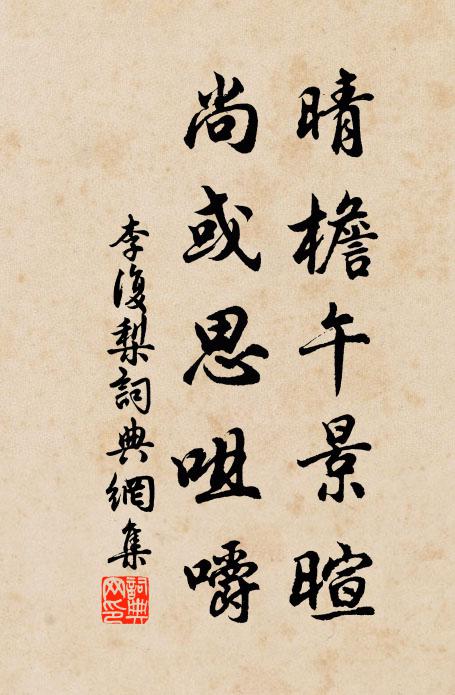 晴檐午景暄
尚或思咀嚼
李復梨詞典網集
詞典網印